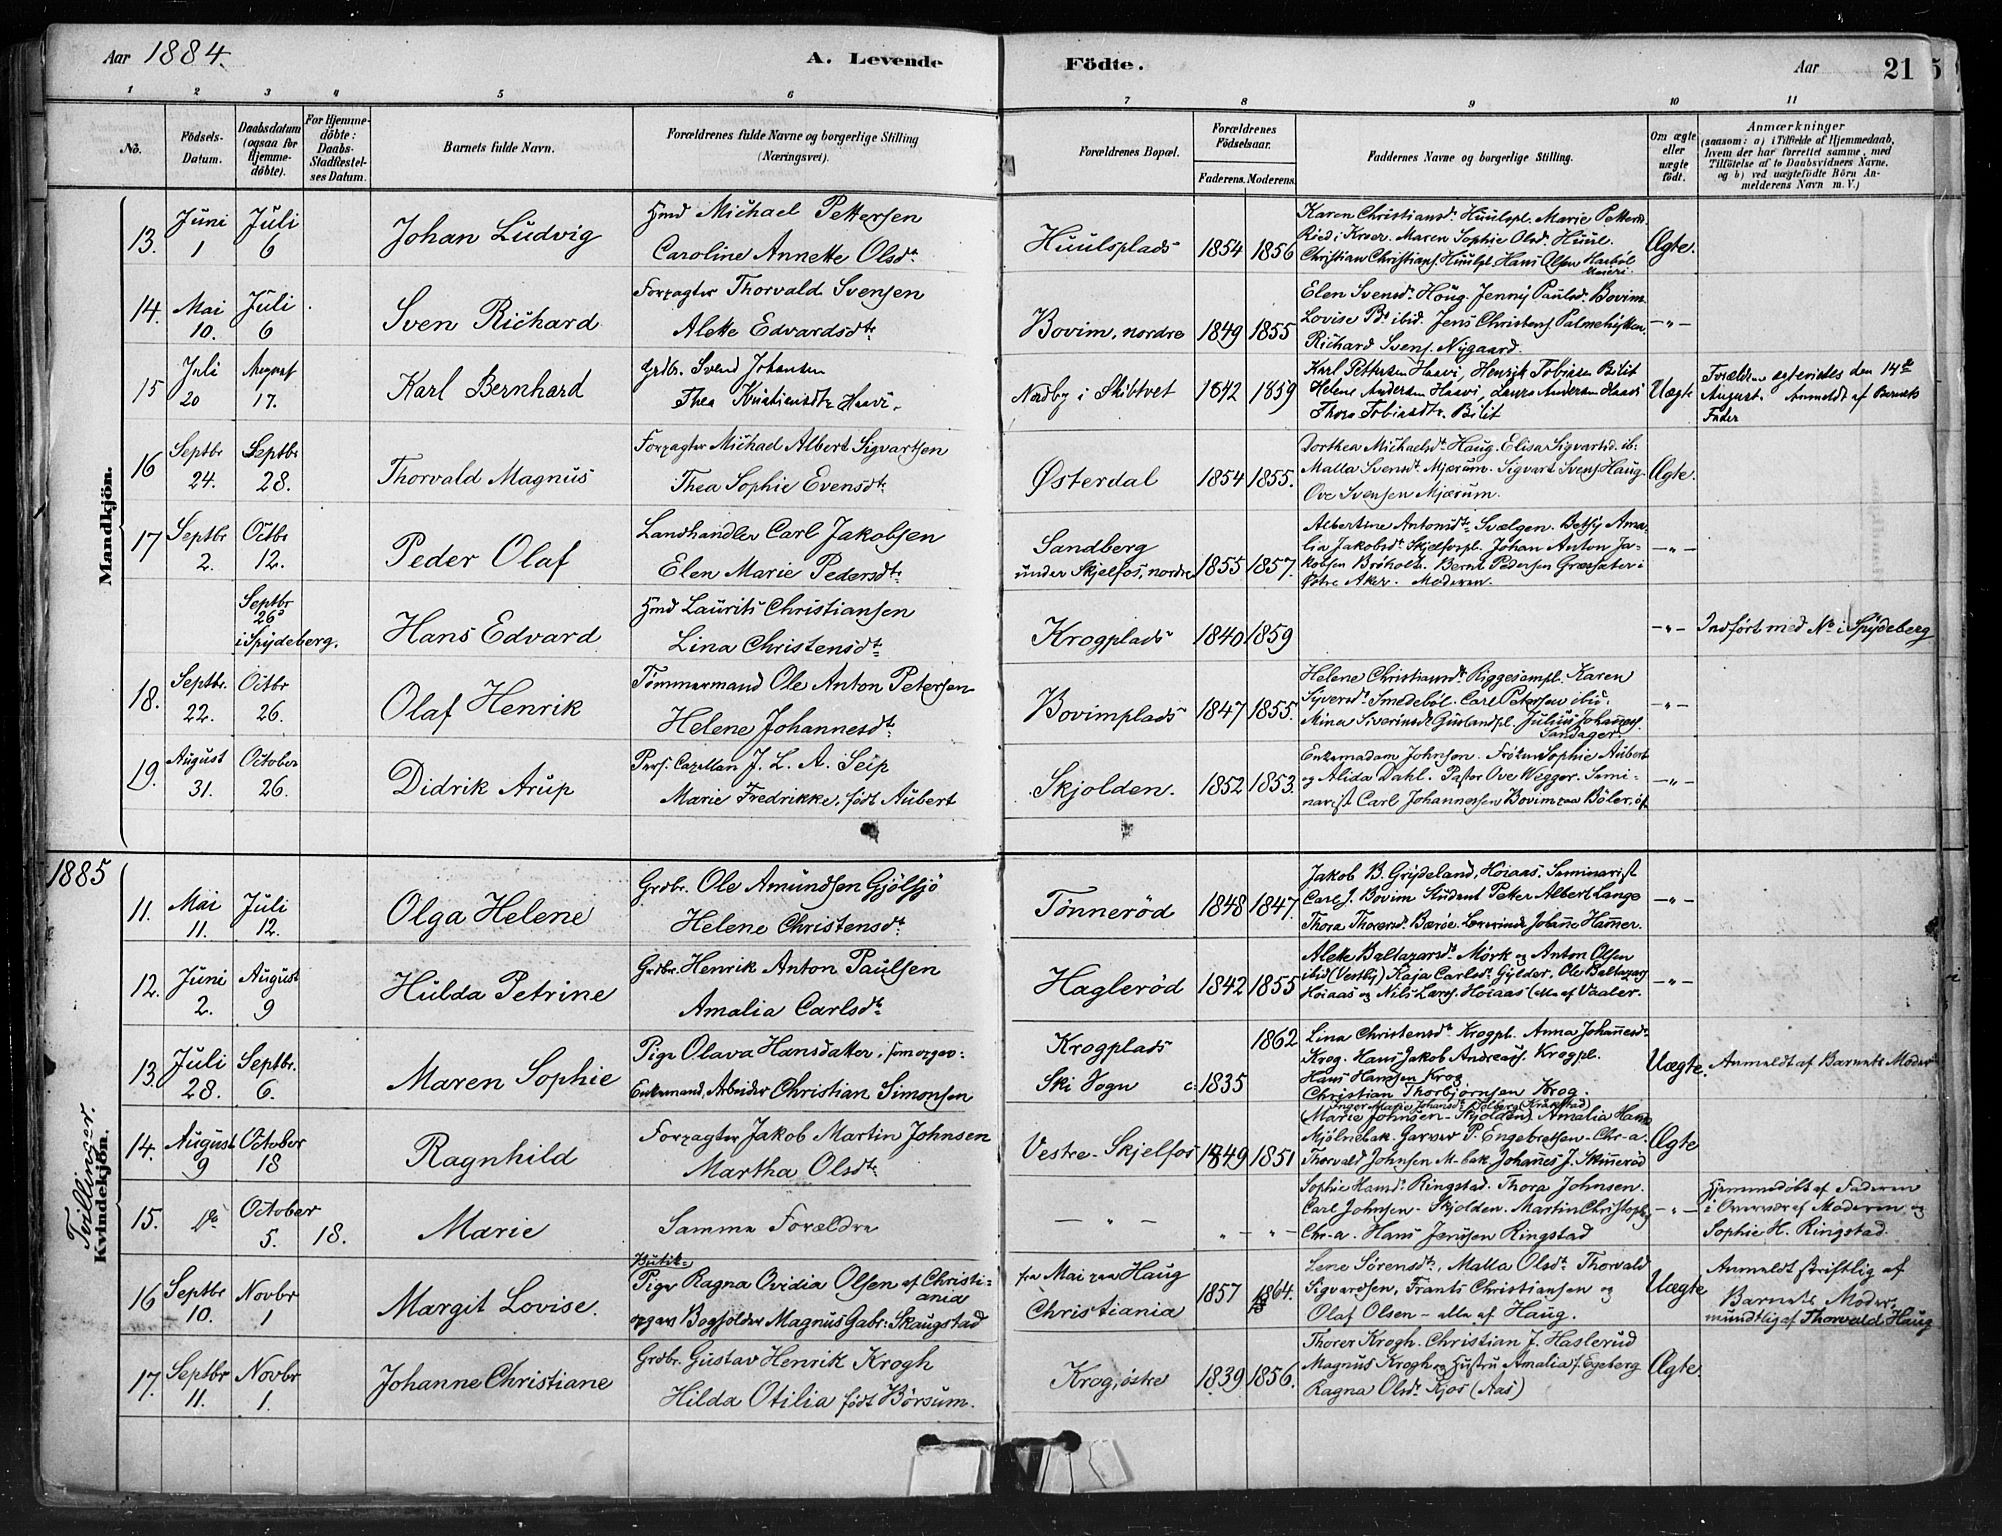 Aar 1884.
A. Levende Födte.
Aar
21
1 2 3 4 5 6 7 8 9 10 11
No.
Födsels-Datum.
Daabsdatum (ogsaa for Hjemme-döbte).
For Hjemme-döbte: Daabs-Stadfæstel-ses Datum.
Barnets fulde Navn.
Forældrenes fulde Navne og borgerlige Stilling (Næringsvei).
Forældrenes Bopæl.
Forældrenes Födselsaar.
Faderens. Moderens.
Faddernes Navne og borgerlige Stilling.
Om ægte eller uægte født.
Anmærkninger
(saasom: a) i Tilfælde af Hjemmedaab,
hvem der har forrettet samme, med
Tilföielse af to Daabsvidners Navne,
og b) ved uægtefödte Börn An-
melderens Navn m. V.)
Mandkjön.
13. Juni 1 Juli 6 Johan Ludvig
Hmd Michael Pettersen
Caroline Annette Olsdt.
Huulsplads 1854 1856
Karen Christiansdt. Huulspl. Marie Petters.
Ried i Kroer. Maren Sophie Olsd. Huul.
Christian Christians. Huulspl. Hans Olsen
Ægte.
14. Mai 10. Juli 6 Sven Richard
Forpagter Thorvald Svensen
Alette Edvardsdtr
Bovim, nordre 1849 1855
Elen Svensdt. Houg. Jenny Paulsd. Bovim.
Lovise Pd. ibid. Jens Christens. Palmehytten.
Richard Svens. Nygaard.
—"—
15 Juli 20 August 17. Karl Bernhard
Grdbr. Svend Johansen
Thea Kristiansdtr Haavi.
Nordby i Skibtvet 1842 1859
Karl Pettersen Haavi, Henrik Tobiasen Bilit
Helene Andersen Haavi, Laura Andersen Haavi
Thora Tobiasdtr. Bilit
Uægte
Forældrene ægteviedes den 14de
August. Anmeldt af Barnets
Fader
16 Septbr 24. Septbr 28. Thorvald Magnus
Forpagter Michael Albert Sigvartsen
Thea Sophie Evensdtr
Østerdal 1854 1855.
Dorthea Michaelsdt. Haug. Elisa Sigvartsd. ib:
Malla Svensdt. Mjærum. Sigvart Svens Haug.
Ove Svensen Mjærum.
Ægte.
17 Septbr 2. Octbr 12. Peder Olaf
Landhandler Carl Jakobsen
Elen Marie Pedersdtr.
Sandberg
under Skjelfos, nordre 1855 1857.
Albertine Antonsdtr Svælgen. Betsy Ama-
lia Jakobsdt. Skjelfospl. Johan Anton Ja-
kobsen Bröholt. Bernt Pedersen Græsæter i
Østre Aker. Moderen.
—"—
Septbr 26 i Spydeberg. Hans Edvard
Hmd Laurits Christiansen
Lina Christensdt
Krogplads 1840 1859
—"—
Indført med No i Spydeberg
18. Septbr. 22. Octbr 26. Olaf Henrik
Tømmermand Ole Anton Petersen
Helene Johannesdt.
Bovimplads 1847 1855.
Helene Christiansdt. Riggesömpl. Karen
Syversdt. Smedeböl. Carl Petersen ibid.
Mina Siverinsdt Guslandpl. Julius Johannes.
Sandager.
—"—
19. August 31. October 26. Didrik Arup
Pers. Capellan J. L. A. Seip
Marie Fredrikke, født Aubert
Skjolden. 1852 1853.
Enkemadam Johnsen. Frøken Sophie Aubert
og Alida Dahl. Pastor Ove Wegger. Semi-
narist Carl Johannessen Bovim paa Böler, öf
—"—
1885
Tvillinger.
Kvindekjön.
11. Mai 11. Juli 12. Olga Helene
Grdbr. Ole Amundsen Gjölsjö
Helene Christensdt.
Tönneröd 1848 1847.
Jakob B. Grydeland, Hoiaas. Seminarist
Carl J. Bovim Student Petter Albert Lange
Thora Thorersdt. Bæröe. Lærerinde Johanne Hammer.
—"—
12. Juni 2. August 9 Hulda Petrine
Grdbr. Henrik Anton Paulsen
Amalia Carlsdt
Hagleröd 1842 1855
Alette Baltazarsdt. Mörk og Anton Olsen
ibid (Vestby) Kaja Carlsdt. Gylder. Ole Baltazars
Hoiaas og Nils Lars. Hoiaas (alle af Vaaler.
—"—
13. Juli 28. Septbr. 6. Maren Sophie
Pige Olava Hansdatter,
Enkemand, Arbeider Christian Simonsen
Krogplads 1862
Ski Sogn c: 1835
Lina Christensdt. Krogpl. Anna Johannesdt.
Krog. Hans Jakob Andreass. Krogpl.
Hans Hansen Krog
Christian Thorbjörnsen Krog.
Uægte.
Anmeldt af Barnets Moder
14. August 9 October 18 Ragnhild
Forpagter Jakob Martin Johnsen
Martha Olsdt.
Vestre Skjelfos 1849 1851
Inger Marie Johansdt. Solberg (Kraakstad)
(Marie Johnsen - Skjolden). Amalia Hans
Mjölnebak. Garver P. Engebretsen - Chr-a.
Thorvald Johnsen M-bak Johannes J. Skinneröd
Ægte
15. Do October 5. 18. Marie
Samme Forældre
— " — " — " —
Sophie Hansdt. Ringstad. Thora Johnsen.
Carl Johnsen - Skjolden. Martin Christoph
Chr-a. Hans Jensen Ringstad
—"—
Hjemmedöbt af Faderen
i Overvær af Moderen og
Sophie H. Ringstad.
16 Septbr 10. Novbr 1 Margit Lovise.
Butik-
Pige Ragna Ovidia Olsen af Christi-
ania
opgav Bogholder Magnus Gabr. Skaugstad
fra Mai paa Haug
Christiania 1857 1864.
Lene Sörensdt, Malla Olsdt. Thorvald
Sigvardsen, Frants Christiansen og
Olaf Olsen - alle af Haug.
Uægte
Anmeldt skriftlig af
Barnets Moder,
mundtlig af Thorvald Haug
17. Septbr 11. Novbr 1. Johanne Christiane
Grdbr. Gustav Henrik Krogh
Hilda Otilia født Børsum.
Krog, östre 1839 1856.
Thorer Krogh. Christian J. Haslerud
Magnus Krogh og Hustru Amalia f. Egeberg
Ragna Olsdt. Kjos (Aas)
Ægte.